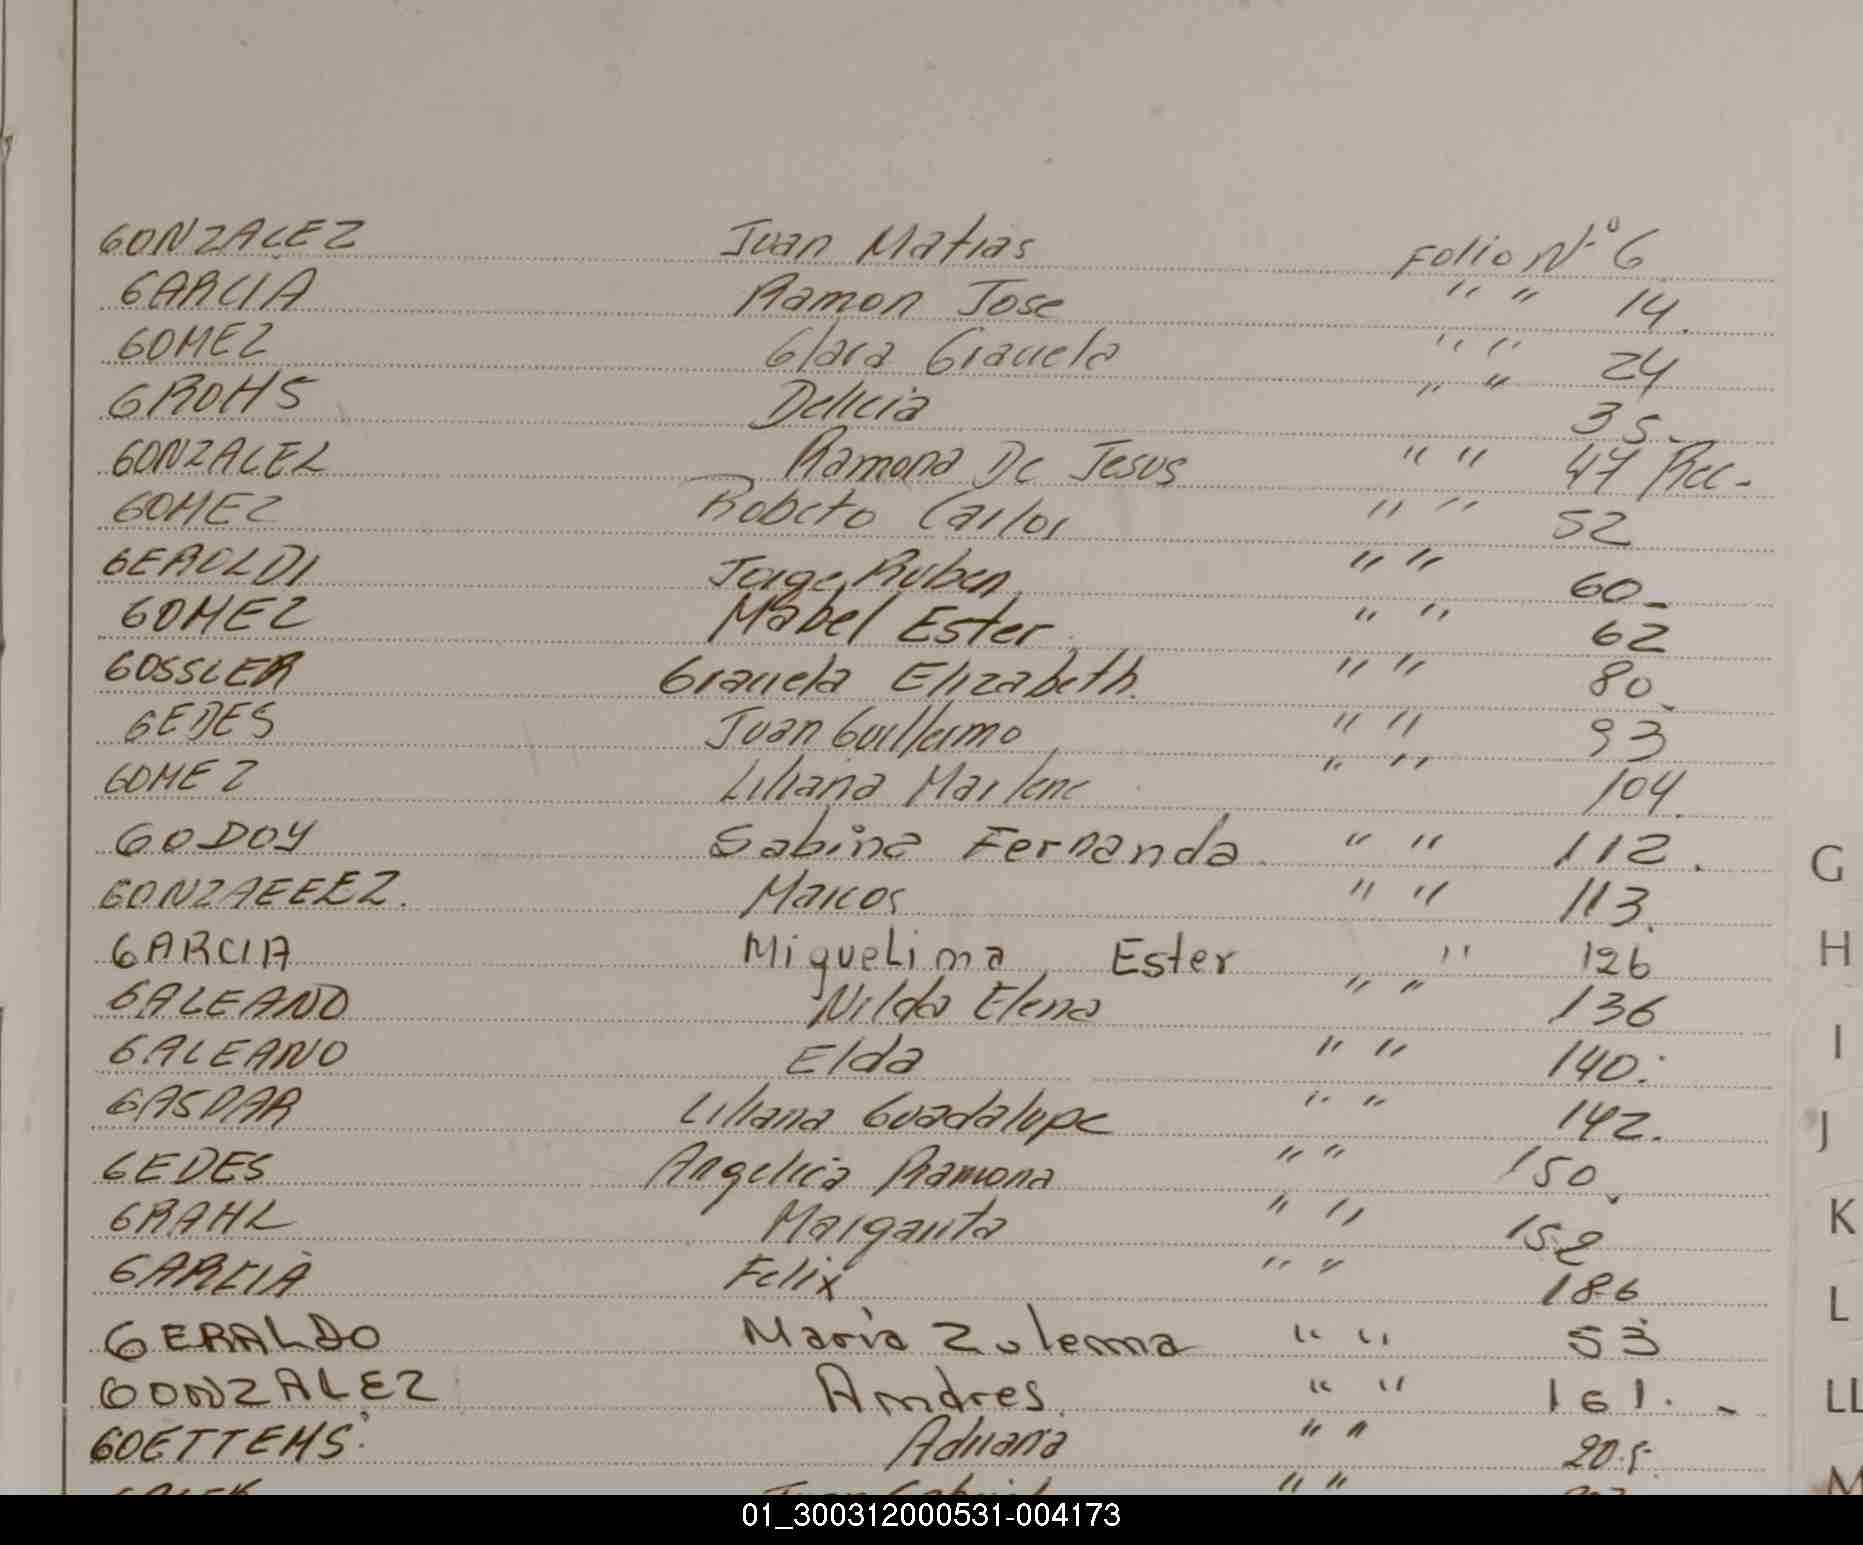 GONZALEZ Juan Matias Folio N° 6
GARCIA Ramon Jose " " 14.
GOMEZ Glara Graciela " " 24
GROHS Delicia " " 35.
GONZALEZ Ramona De Jesus " " 47 Rec-
GOMEZ Roberto Carlos " " 52
GEROLDI Jorge Ruben " " 60-
GOMEZ Mabel Ester " " 62
GOSSLER Graciela Elizabeth " " 80
GEDES Juan Guillermo " " 93
GOMEZ Liliana Marlene " " 104.
GODOY Sabina Fernanda. " " 112.
Marcos " " 113.
GARCIA Miquelima Ester " 126
GALEANO Nilda Elena " " 136
GALEANO Elda " " 140.
GASPAR Liliana Guadalupe " " 142.
GEDES Angelica Ramona " " 150
GRAHL Margarita " " 152
GARCIA Felix " " 186
GERALDO Maria Zulema " " 53
GONZALEZ Amdres. " " 161. -
GOETTEMS Adriana " " 205.
" "
G
H
I
J
K
L
LL
M
01_300312000531-004173